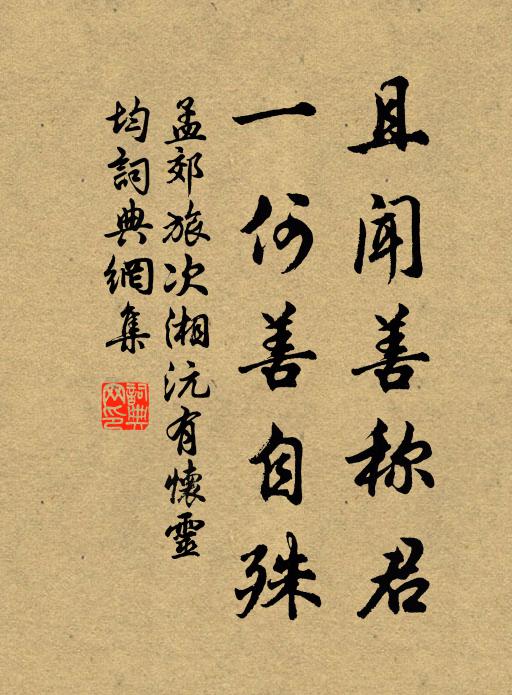 且闻善称君
一何善自殊
孟郊旅次湘沅有懷靈
均詞典網集
詞典
网印